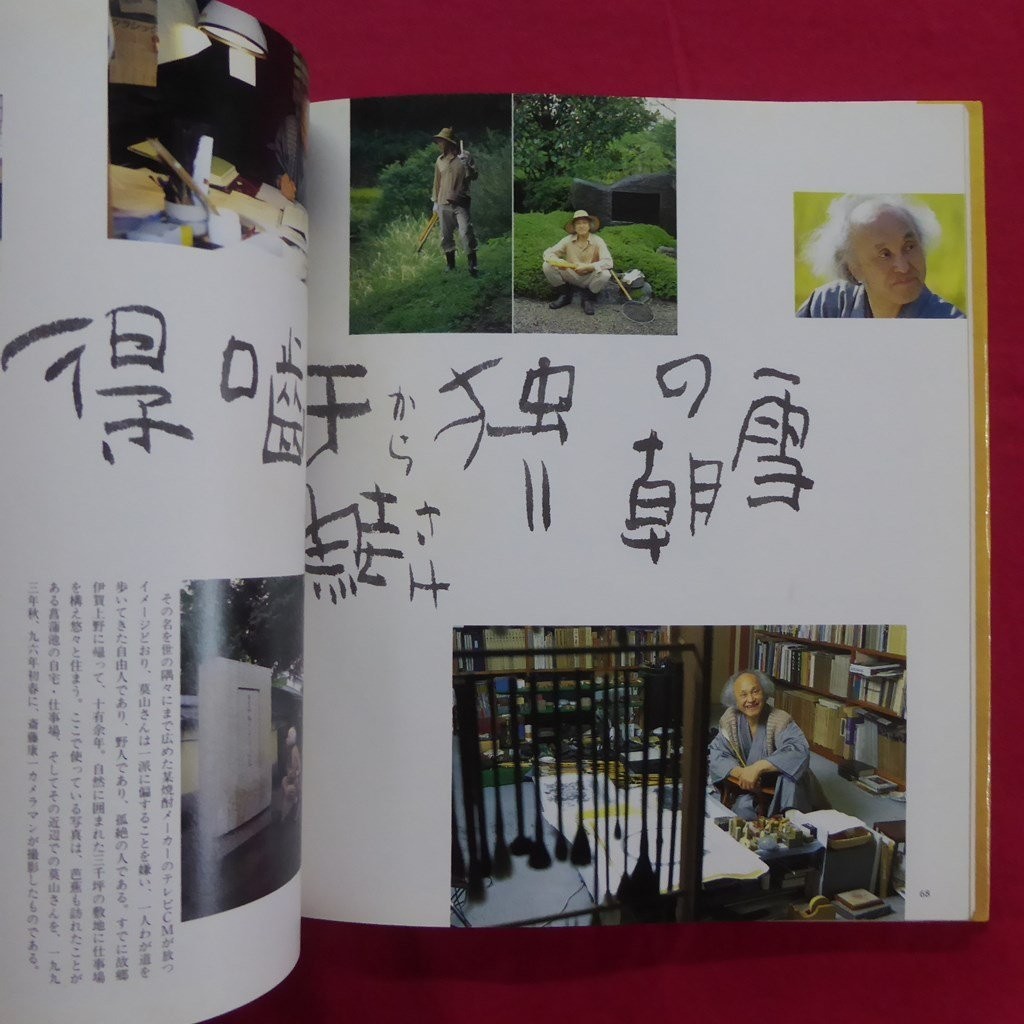 雪
の朝
独り
干
から
さけ
を
噛
得
その名を世の隅々にまで広めた某焼酎メーカーのテレビCMが放つ
イメージどおり、莫山さんは一派に偏することを嫌い、一人わが道を
歩いてきた自由人であり、野人であり、孤絶の人である。すでに故郷
伊賀上野に帰って、十有余年。自然に囲まれた三千坪の敷地に仕事場
を構え悠々と住まう。ここで使っている写真は、芭蕉も訪れたことが
ある菖蒲池の自宅・仕事場、そしてその近辺での莫山さんを、一九九
三年秋、九六年初春に、斎藤康一カメラマンが撮影したものである。
68